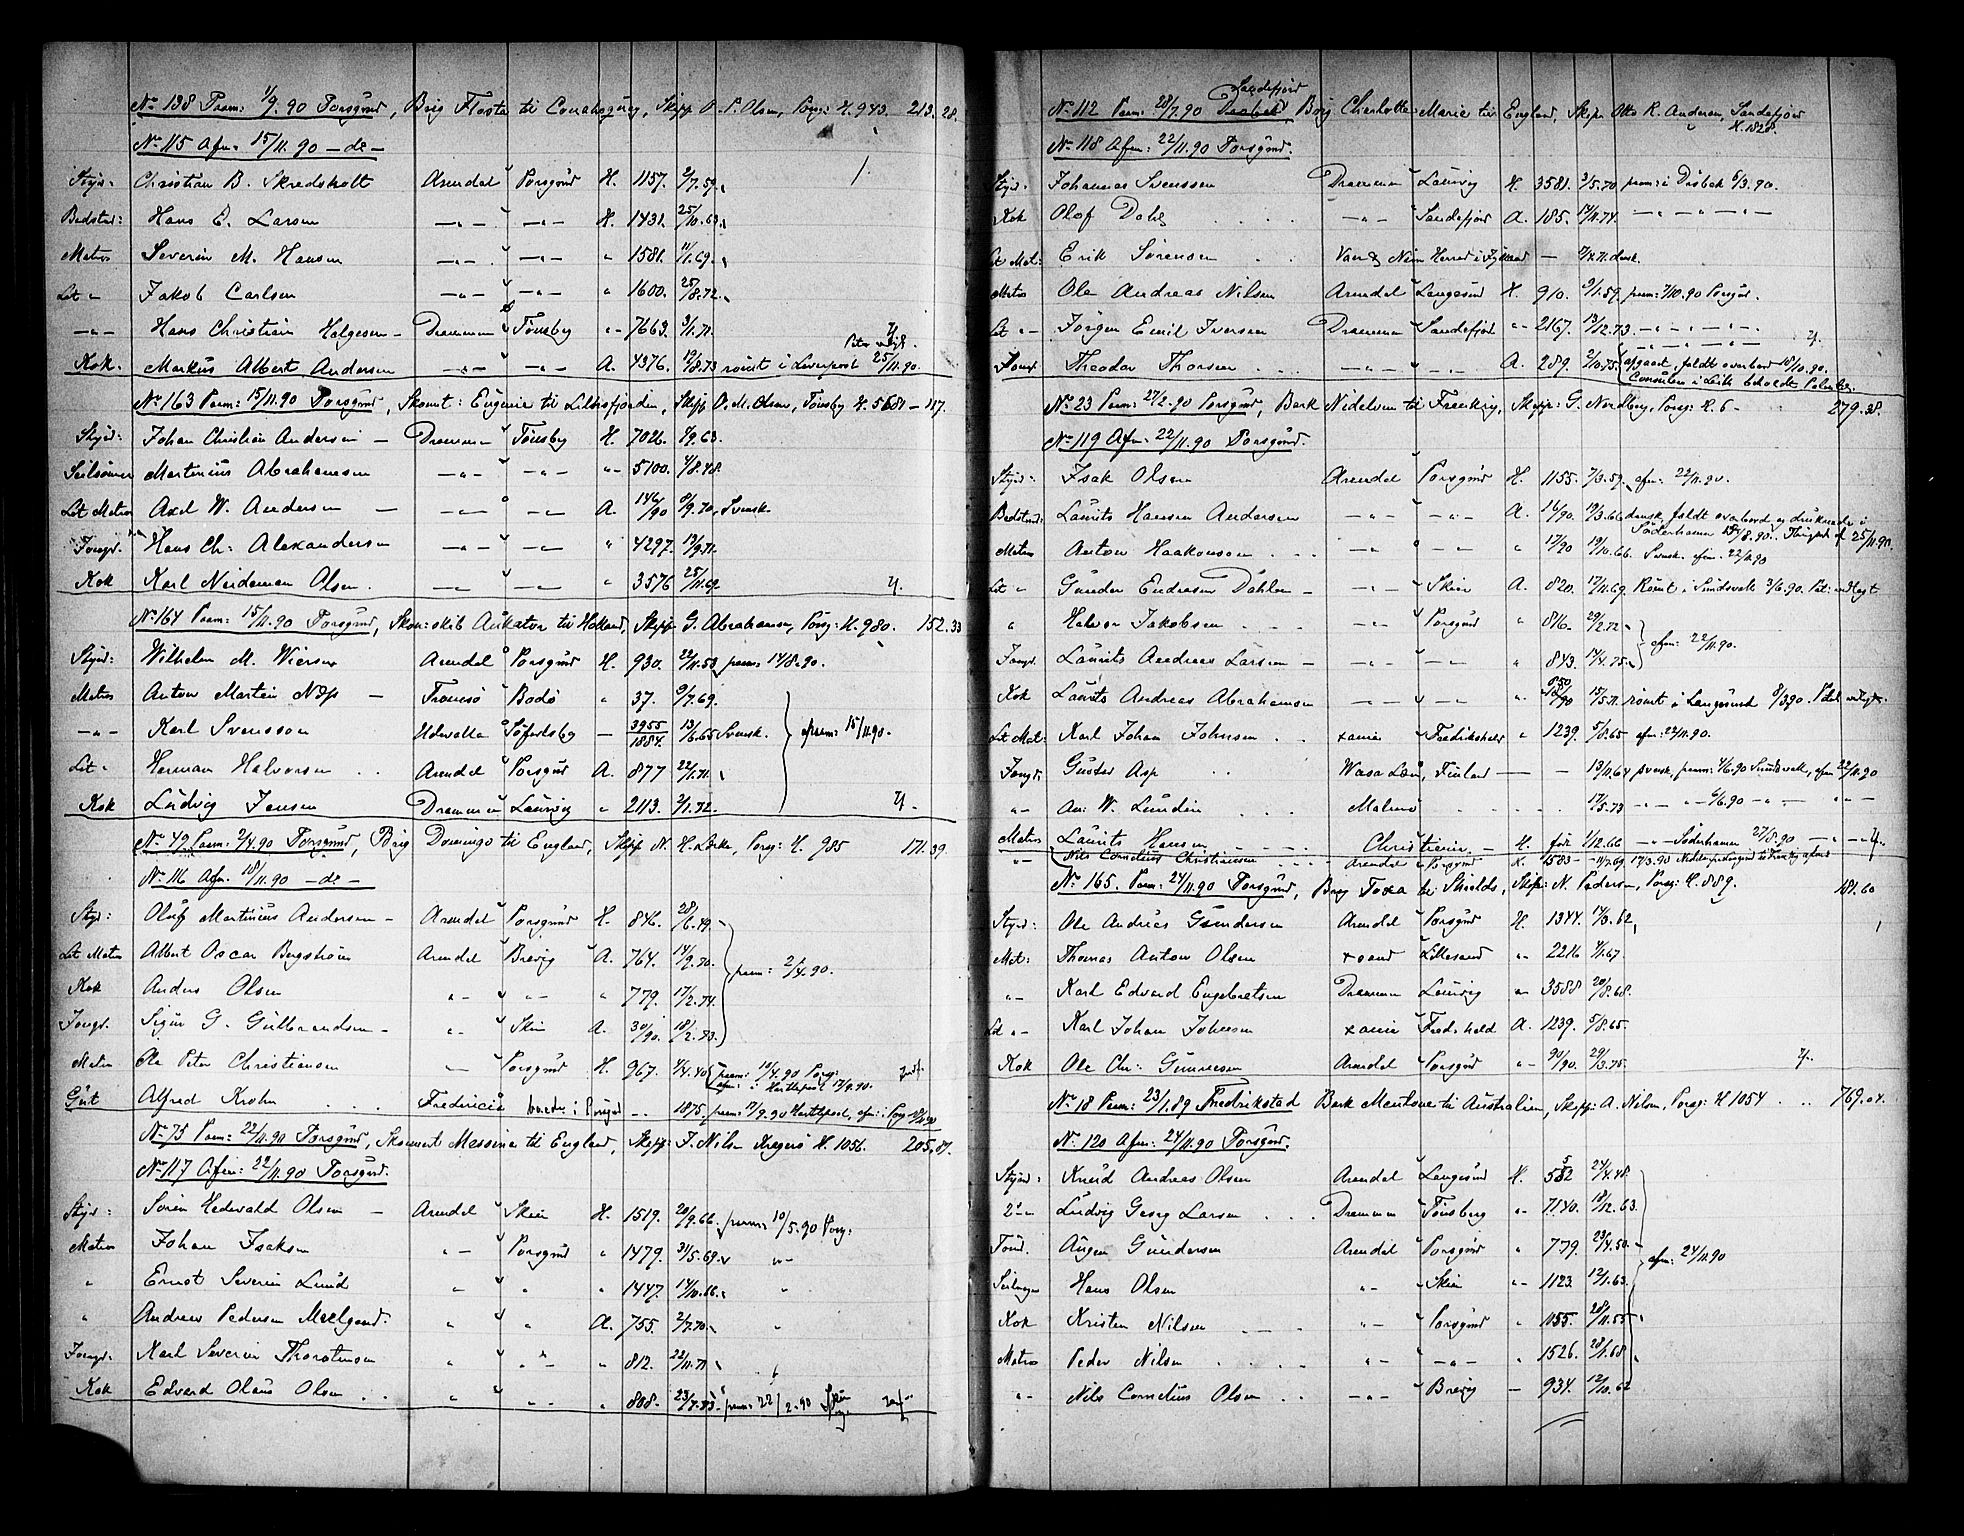 No 138 Paam: 1/9.90 Porsgrund, Brig Flosta til, Skipp O. P. Olsen, Porsg: H. 943. 213.28.
No 115 Afm: 15/11.90 - do -
Styrd: Christian B. Skredsholt Arendal Porsgrund H. 1157. 2/7.59.
Bødster: Hans C. Larsen - " - - " - H. 1431. 25/10.63.
Matros Severin M. Hansen - " - - " - " 1581. 11/1.69.
Let " Jakob Carlsen - " - - " - " 1600. 25/8.72.
- " - Hans Christian Helgesen - Drammen Tønsberg " 7663. 3/1.71.
Kok. Markus Albert Andersen - " - - " - A. 4376. 19/8.73 rømt i Liverpool 25/11.90.
No 163 Paam: 15/11.90 Porsgrund, Skonnt: Eugenie til Limfjorden, Skipp O. M. Olsen, Tønsberg H. 5681 - 117.
Styrd: Johan Christian Andersen - Drammen Tønsberg H. 7026. 4/9.63.
Seilsømmer Martinius Abrahamsen - " - - " - " 5100. 4/8.48.
Let Matros Axel W. Andersen - - " - - " - A. 146/90 9/9.70, Svensk.
Jungd. Hans Ch: Alexandersen - " - - " - " 4297. 19/9.71.
Kok Karl Neideman Olsen. - " - - " - " 3576 25/11.69.
No 164 Paam: 15/11.90 Porsgrund, Skon: skib Aükator til Holland, Skipp G. Abrahamsen, Porsg: H. 980. 152.33
Styrd: Wilhelm M. Wiersen Arendal Porsgrund H. 930. 22/11.53 paam: 14/8.90.
Matros Anton Martin Næss - Tromsø Bodø " 37. 9/7.69.
- " - Karl Svensson Udevalla - 3955/1884. 13/6.65 Svensk. paam: 15/11.90.
Let " Herman Halvorsen . . Arendal Porsgrund A. 877 22/1.71.
Kok Ludvig Jensen Drammen Laurvig " 2113. 3/1.72.
No 49 Paam: 2/4.90 Porsgrund, Brig Domingo til England, Skipp N. H., Porsg: H. 985 171.39.
No 116 Afm. 18/11.90 - do -
Styr: Oluf Martinius Andersen - Arendal Porsgrund H. 846. 28/6.49.
Let Matros Albert Oscar Bergstrøm Arendal Brevig A. 764. 14/9.70. paam: 2/4.90.
Kok Anders Olsen " - " - " 779. 17/2.74.
Jungd. Sigur G. Gulbrandsen - " - Skien A. 30/90. 18/2.73.
Matros Ole Peter Christiansen " - Porsgrund H. 967. 4/4.40 paam: 10/4.90 Porsg: afm: i Hartlepool 17/9.90.
Gut Alfred Krohn . . . Fredericia i Porsgrd - 1875. paam: 17/9.90 Hartlepool, afm: i Porsg 18/11.90
No 75 Paam: 22/11.90 Porsgrund, Skonnert Messina til England, Skipp: J. Nilsen Kragerø H. 1056. 205.87.
No 117 Afm: 22/11.90 Porsgrund.
Styrd: Søren Hedevald Olsen - Arendal Skien H. 1519. 20/9.66. paam: 10/5.90 Porsg:
Matros Johan Isaksen " - Porsgrund " 1479. 31/5.69. " -
" Ernst Severin Lund " " " 1447. 14/10.66. "
" Andreas Pedersen Mælgaard. " " A. 755. 2/7.70. "
Jungd: Karl Severin Thorstensen " " " 812. 22/11.71. "
Kok Edvard Olaus Olsen . . " " - " 808. 23/7.73. paam: 22/2.90 Skien
Sandefjord
No 112 Paam: 28/7.90 Drøbak, Brig Charlotte Marie til England, Skipr. Otto R. Andersen, Sandefjord H. 1828.
No 118 Afm: 22/11.90 Porsgrund.
Styrd: Johannes Svenssen Drammen Laurvig H. 3581. 3/5.70 paam: i Drøbak 6/3.90.
Kok Olof Dahl . . . . - " - Sandefjord A. 185. 14/11.74. - " - " - " -
Let Mat: Erik Sørensen . . Nim Herred i Jylland - dansk.
Matros Ole Andreas Nilsen Arendal Langesund H. 910. 9/1.59. paam: 7/10.90 Porsgrd.
Let " - Jørgen Emil Iversen Drammen Sandefjord " 2167. 13/12.73. - " - " - " -
Jungd. Theodor Thorsen . . . - " - " - A. 289. 2/10.75. afgaaet, faldt overbord 18/10.90.
Consulen i Leith beholdt Pat.
No 23 Paam: 27/2.90 Porsgrund, Bark Nidelven til Frankrig, Skipp: G. Nordberg, Porsg: H. 6 - 279.38.
No 119 Afm: 22/11.90 Porsgrund.
Styrd: Isak Olsen Arendal Porsgrund H. 1155. 7/3.59. afm: 22/11.90.
Bødstmd: Laurits Hansen Andersen - " - - " - A. 16/90. 19/3.66 dansk, faldt overbord og druknede i
Söderhamn 15/8.90. 25/11.90.
Matros Anton Haakonsen . . . - " - - " - " 17/90 19/10.66. Svensk. afm: 22/11.90
Let " Gunder Endresen Dahlen - - " - Skien A. 820. 17/11.69. Rømt i Sundsvall 3/6.90 Pat: vedlagt
" Halvor Jakobsen . . . - " - Porsgrund " 816. 29/2.72. afm: 22/11.90.
Jungd. Laurits Andreas Larsen - - " - - " - " 843. 14/4.75.
Kok Laurits Andreas Abrahamsen - " - - " - " 850 /90 15/5.71. rømt i Langesund 8/3.90. Patent vedlagt.
Let Mat: Karl Johan Johnsen . . xania Fredrikshald " 1239. 5/8.65 afm: 22/11.90.
Jungd: Gustav Asp . . Wasa Län, Finland - - 13/11.64 svensk, paam: 4/6.90 Sundsvall, afm 22/11.90
" - An: W. Lundin . . . Malmø . . . . 17/5.73 - " - " - 6/6.90 - " - " - -
Matros Laurits Hansen . - - - Christiania - H. 1/12.66 - " - Söderhamn 27/8.90 - " - " -
" - Nils Cornelius Christiansen . . . . Arendal Porsgrund H. 1583 - 11/7.69,
No 165. Paam: 24/11.90 Porsgrund, Brig Toxa til Shields, Skipr: N. Pedersen, Porsg: H. 889. 181.60
Styrd: Ole Andreas Gundersen Arendal Porsgrund H. 1344. 14/3.62.
Mat: Thomas Anton Olsen xsand Lillesand " 2216 4/1.67.
" - Karl Edvard Engebretsen Drammen Laurvig " 3588 20/8.68.
Let " - Karl Johan Johnsen xania Fredshald A. 1239. 5/8.65.
Kok Ole Chr: Gunnesen Arendal Porsgrund " 90/90. 29/3.75.
No 18 Paam: 23/1.89 Fredrikstad Bark Mentone til Australien, Skipp: A. Nilsen, Porsg: H 1054 . . . 769.04.
No 120 Afm: 24/11.90 Porsgrund.
Styrd: Knud Andreas Olsen Arendal Langesund H. 552 24/4.48.
2d " Ludvig Georg Larsen . . . Drammen Tønsberg " 7140. 18/12.63.
Tømd. Aügen Gundersen Arendal Porsgrund " 779. 23/4.50. afm: 24/11.90
Seilmager Hans Olsen " - Skien " - 1123. 12/1.63.
Kok Kristen Nilsen . . . " - Porsgrund " 1055. 20/11.55
Matros Peder Nilsen . . . . " - - " - " 1526. 20/1.68.
" - Nils Cornelius Olsen . . - " - Brevig - 934. 12/10.62